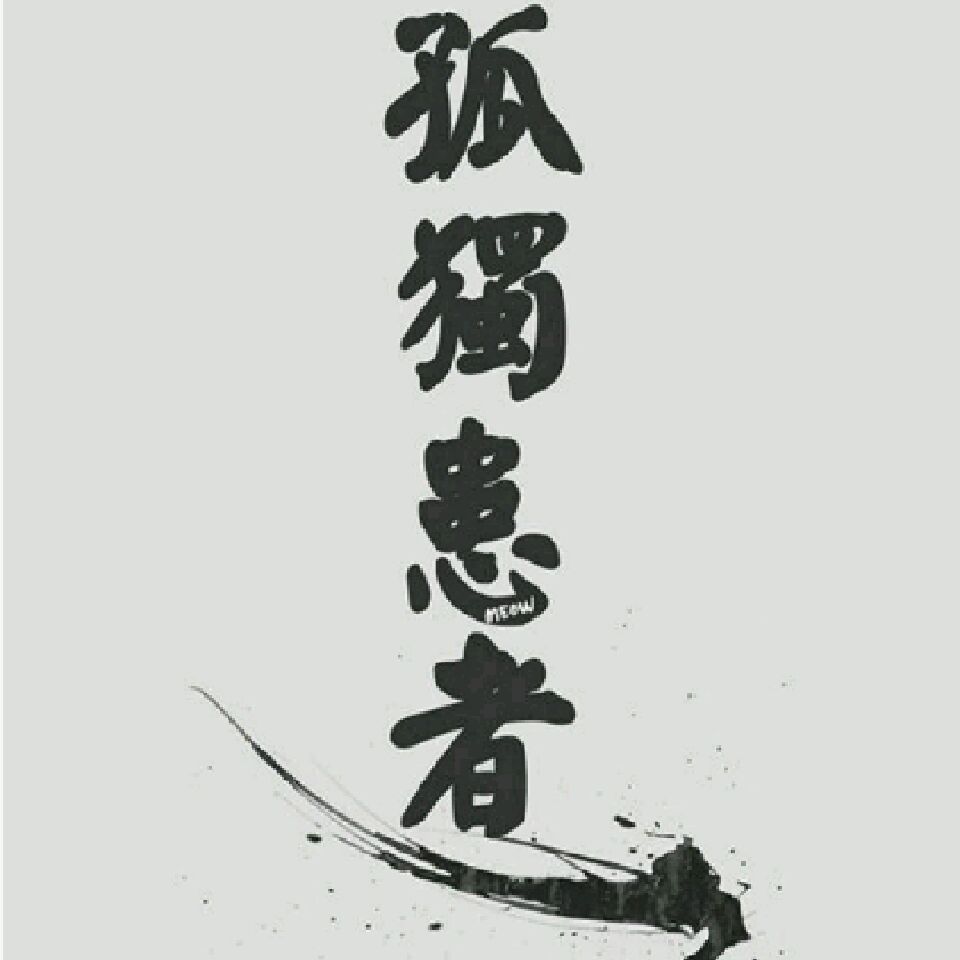 孤獨患者
MEOW